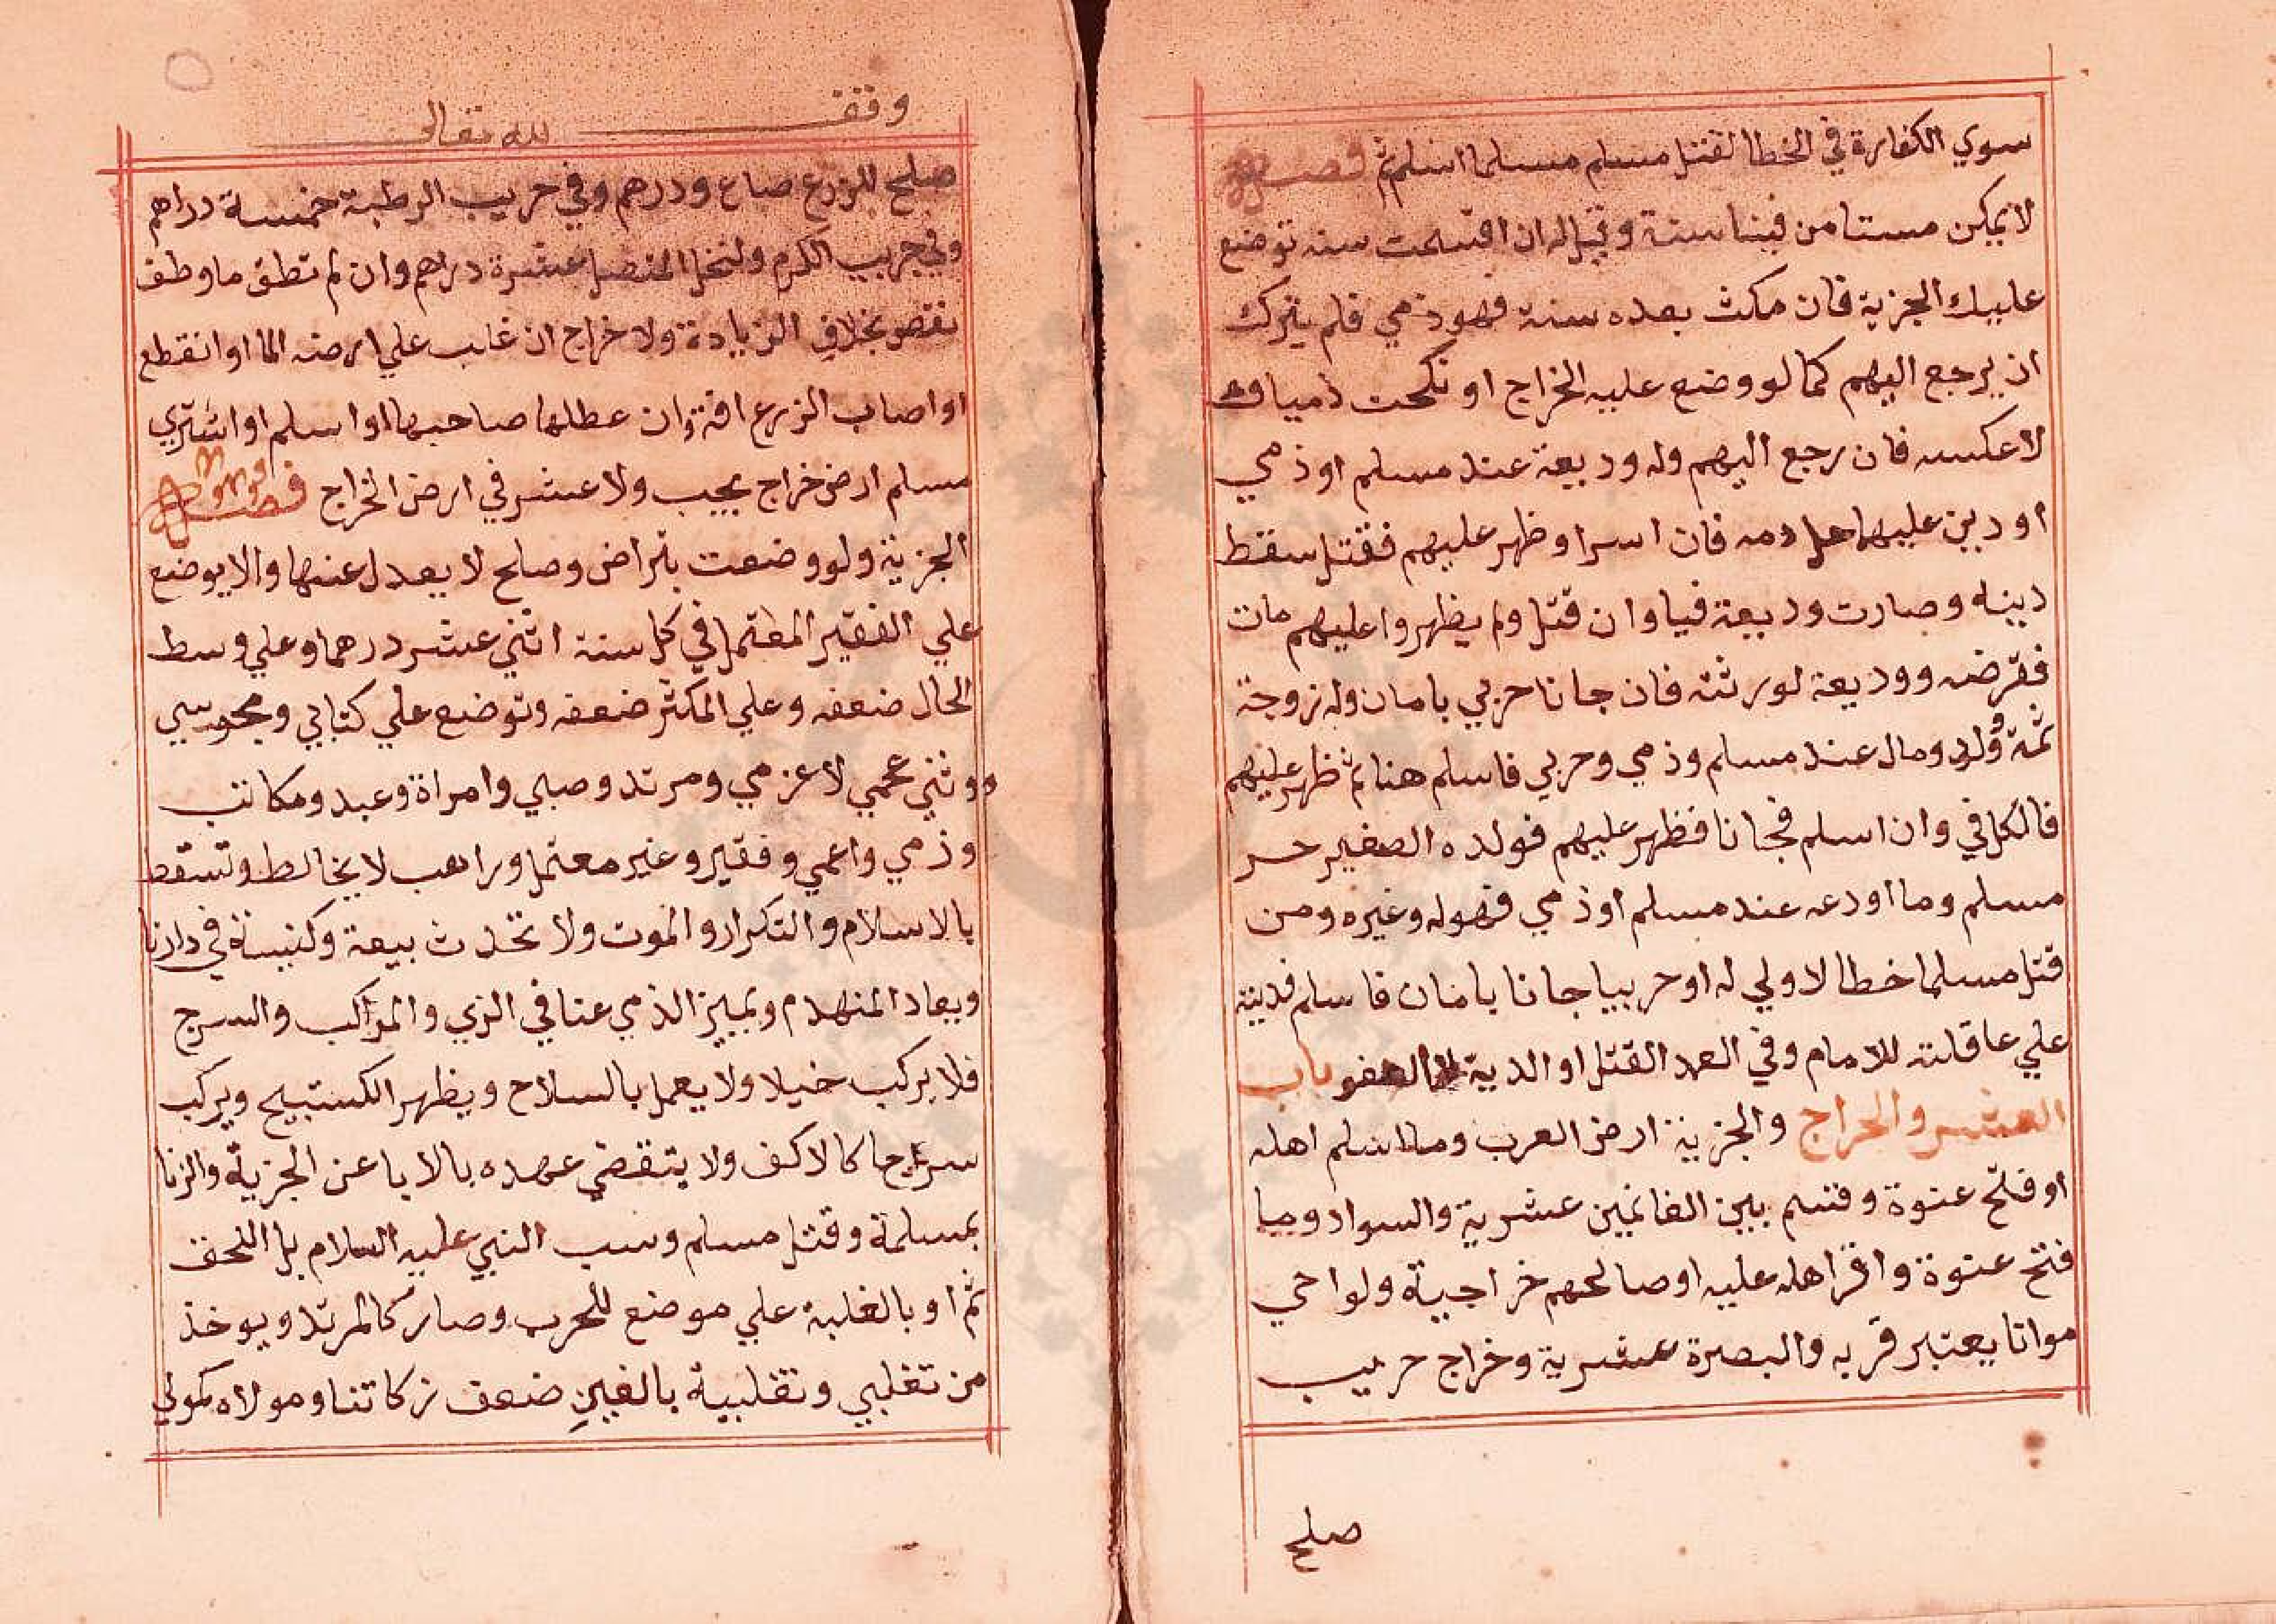 سوي الكفارة في الخطا لقتل مسلم مسلما اسلم ثم فصل
لا يمكن مستامن فينا سنة وقيل له ان اقمت سنه توضع
عليك الجزية فان مكث بعده سنة فهو ذمي فلم يترك
ان يرجع اليهم كما لو وضع عليه الخراج او نكحت ذميا
لا عكسه فان رجع اليهم وله وديعة عند مسلم او ذمي
او دين عليهما حل دمه فان اسر او ظهر عليهم فقتل سقط
دينه وصارت وديعة فيا وان قتل ولم يظهروا عليهم مات
فقرضه ووديعة لورثته فان جانا حربي بامان وله زوجة
ثمة وولد ومال عند مسلم وذمي وحربي فاسلم هنا ثم ظهر عليهم
فالكل في وان اسلم فجانا فظهر عليهم فولده الصغير حر
مسلم وما اودعه عند مسلم او ذمي فهو له وغيره ومن
قتل مسلما خطا لا ولي له او حربيا جانا بامان فاسلم فديته
علي عاقلته للامام وفي العمد القتل او الدية لا العفو باب
العشر والخراج والجزية ارض العرب وما اسلم اهله
او فتح عنوة وقسم بين الغانمين عشرية والسواد وما
فتح عنوة واقر اهله عليه او صالحهم خراجية ولو احي
مواتا يعتبر قربه والبصرة عشرية وخراج جريب
صلح
وقف لله تعالى
صلح للزرع صاع ودرهم وفي جريب الرطبة خمسة دراهم
وفي جريب الكرم ولنخل المتصل عشرة دراهم وان لم تطق ما وظف
نقص بخلاف الزيادة ولا خراج ان غلب علي ارضه الما او انقطع
او اصاب الزرع افة وان عطلها صاحبها او اسلم او اشتري
مسلم ارض خراج يجب ولا عشر في ارض الخراج فصل
الجزية ولو وضعت بتراض وصلح لا يعدل عنها والا يوضع
علي الفقير المعتمل في كل سنة اثني عشر درهما وعلي وسط
الحال ضعفه وعلي المكثر ضعفه وتوضع علي كتابي ومجوسي
ووثني عجمي لا عزمي ومرتد وصبي وامراة وعبد ومكاتب
وذمي واعمي وفقير وغير معتمل وراهب لا يخالط وتسقط
بالاسلام والتكرار والموت ولا تحدث بيعة وكنيسة في دارنا
ويعاد المنهدم ويميز الذمي عنا في الزي والمراكب والسرج
فلا يركب خيلا ولا يعمل بالسلاح ويظهر الكستيج ويركب
سرجا كالاكف ولا ينتقض عهده بالابا عن الجزية والزنا
بمسلمة وقتل مسلم وسب النبي عليه السلام بل اللحق
ثم او بالغلبة علي موضع للحرب وصار كالمرتد ويوخذ
من تغلبي وتغلبية بالغين ضعف زكاتنا ومولاه كمولي